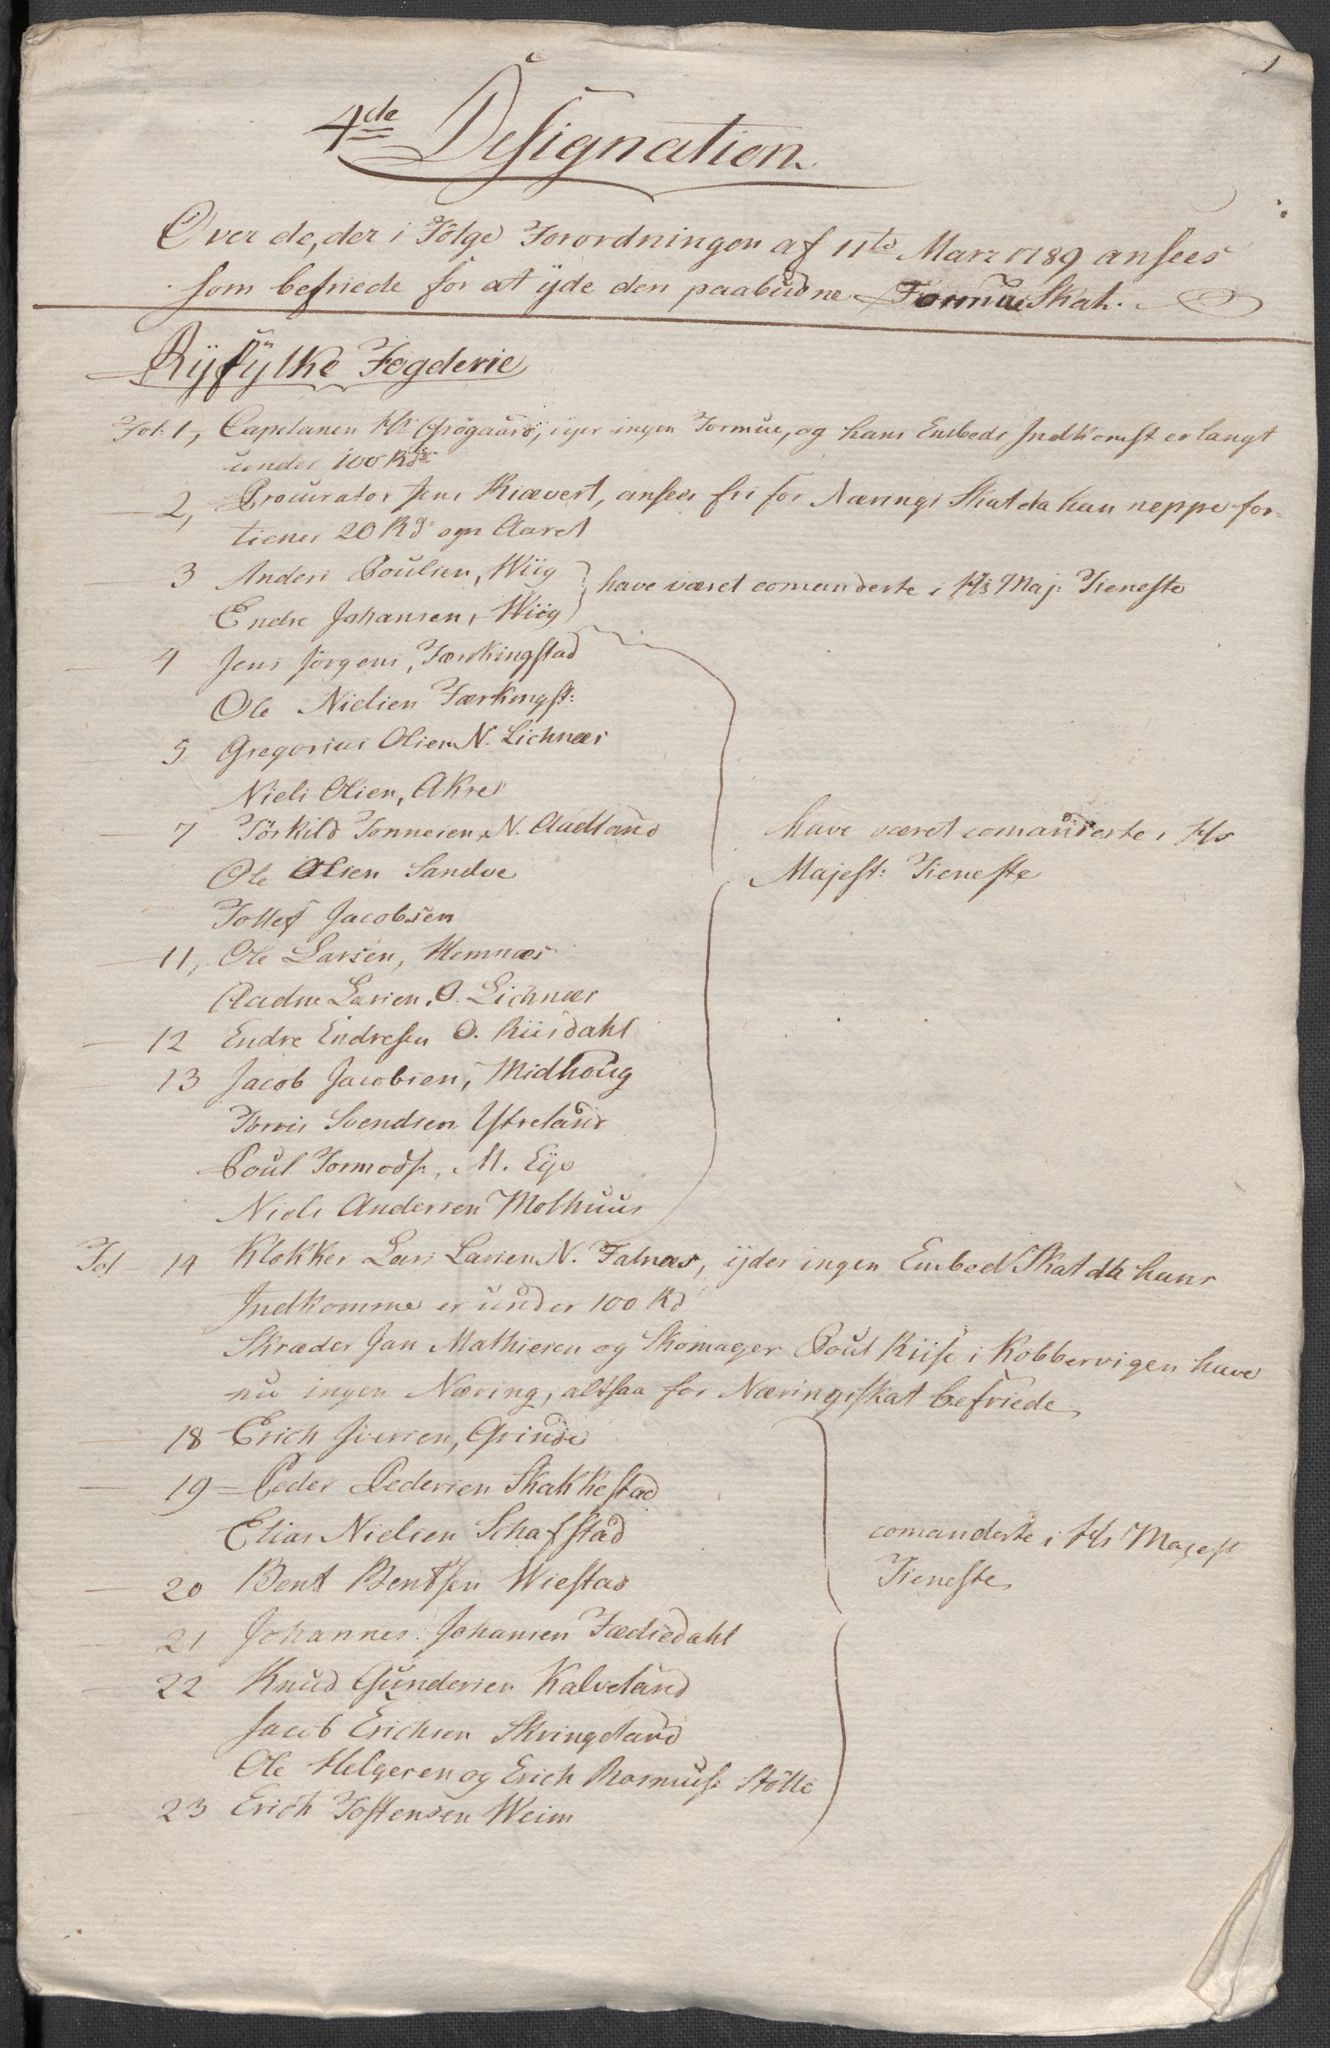 1
4de Designation
Over de, der i Følge Forordningen af 11te Marz 1789 ansees
som befriede for at yde den paabudne Formue Skat.
Ryfylke Fogderie
Fol. 1, Capelanen Hr Grøgaard, eyer ingen Formue, og hans Embeds Indkomst er langt
under 100 Rdr
2, Procurator Jens Kiævert, ansees fri for Nærings Skat da han neppe for-
tiener 20 Rd om Aaret
3 Anders Poulsen, Wiig
Endre Johansen, Wiig
have været comanderte i Hs Maj: Tieneste
4 Jens Jørgens, Færkingstad
Ole Nielsen Færkingst:
5 Gregorius Olsen N. Lichnæs
Niels Olsen, Akre
7 Törkild Tonnesen, N. Aadland
have været comanderte i Hs
Ole Olsen Sandve
Majest: Tieneste
Tollef Jacobsen
11, Ole Larsen, Hemnæs
Aadne Larsen, O. Lichnæs
12 Endre Endresen O. Riisdahl
13 Jacob Jacobsen, Midhoug
Torris Svendsen Ytreland
Poul Tormods:, M. Eye
Niels Andersen Molhuus
Fol 14 Klokker Lars Larsen N. Falnæs, yder ingen Embed Skat da hans
Indkomme er under 100 Rd
Skræder Jan Mathiesen og Skomager Poul Riise i Kobbervigen have
nu ingen Næring, altsaa for Næringsskat befriede
18 Erich Iversen, Grinde
19 Peder Pedersen Skakkestad
Elias Nielsen Schafstad
comanderte i Hs Majest
20 Bent Bentsen Wiestad
Tieneste
21 Johannes Johansen Fædsedahl
22 Knud Gundersen Kalveland
Jacob Erichsen Skringeland
Ole Helgesen og Erich Rasmus: Stølle
23 Erich Tostensen Weim